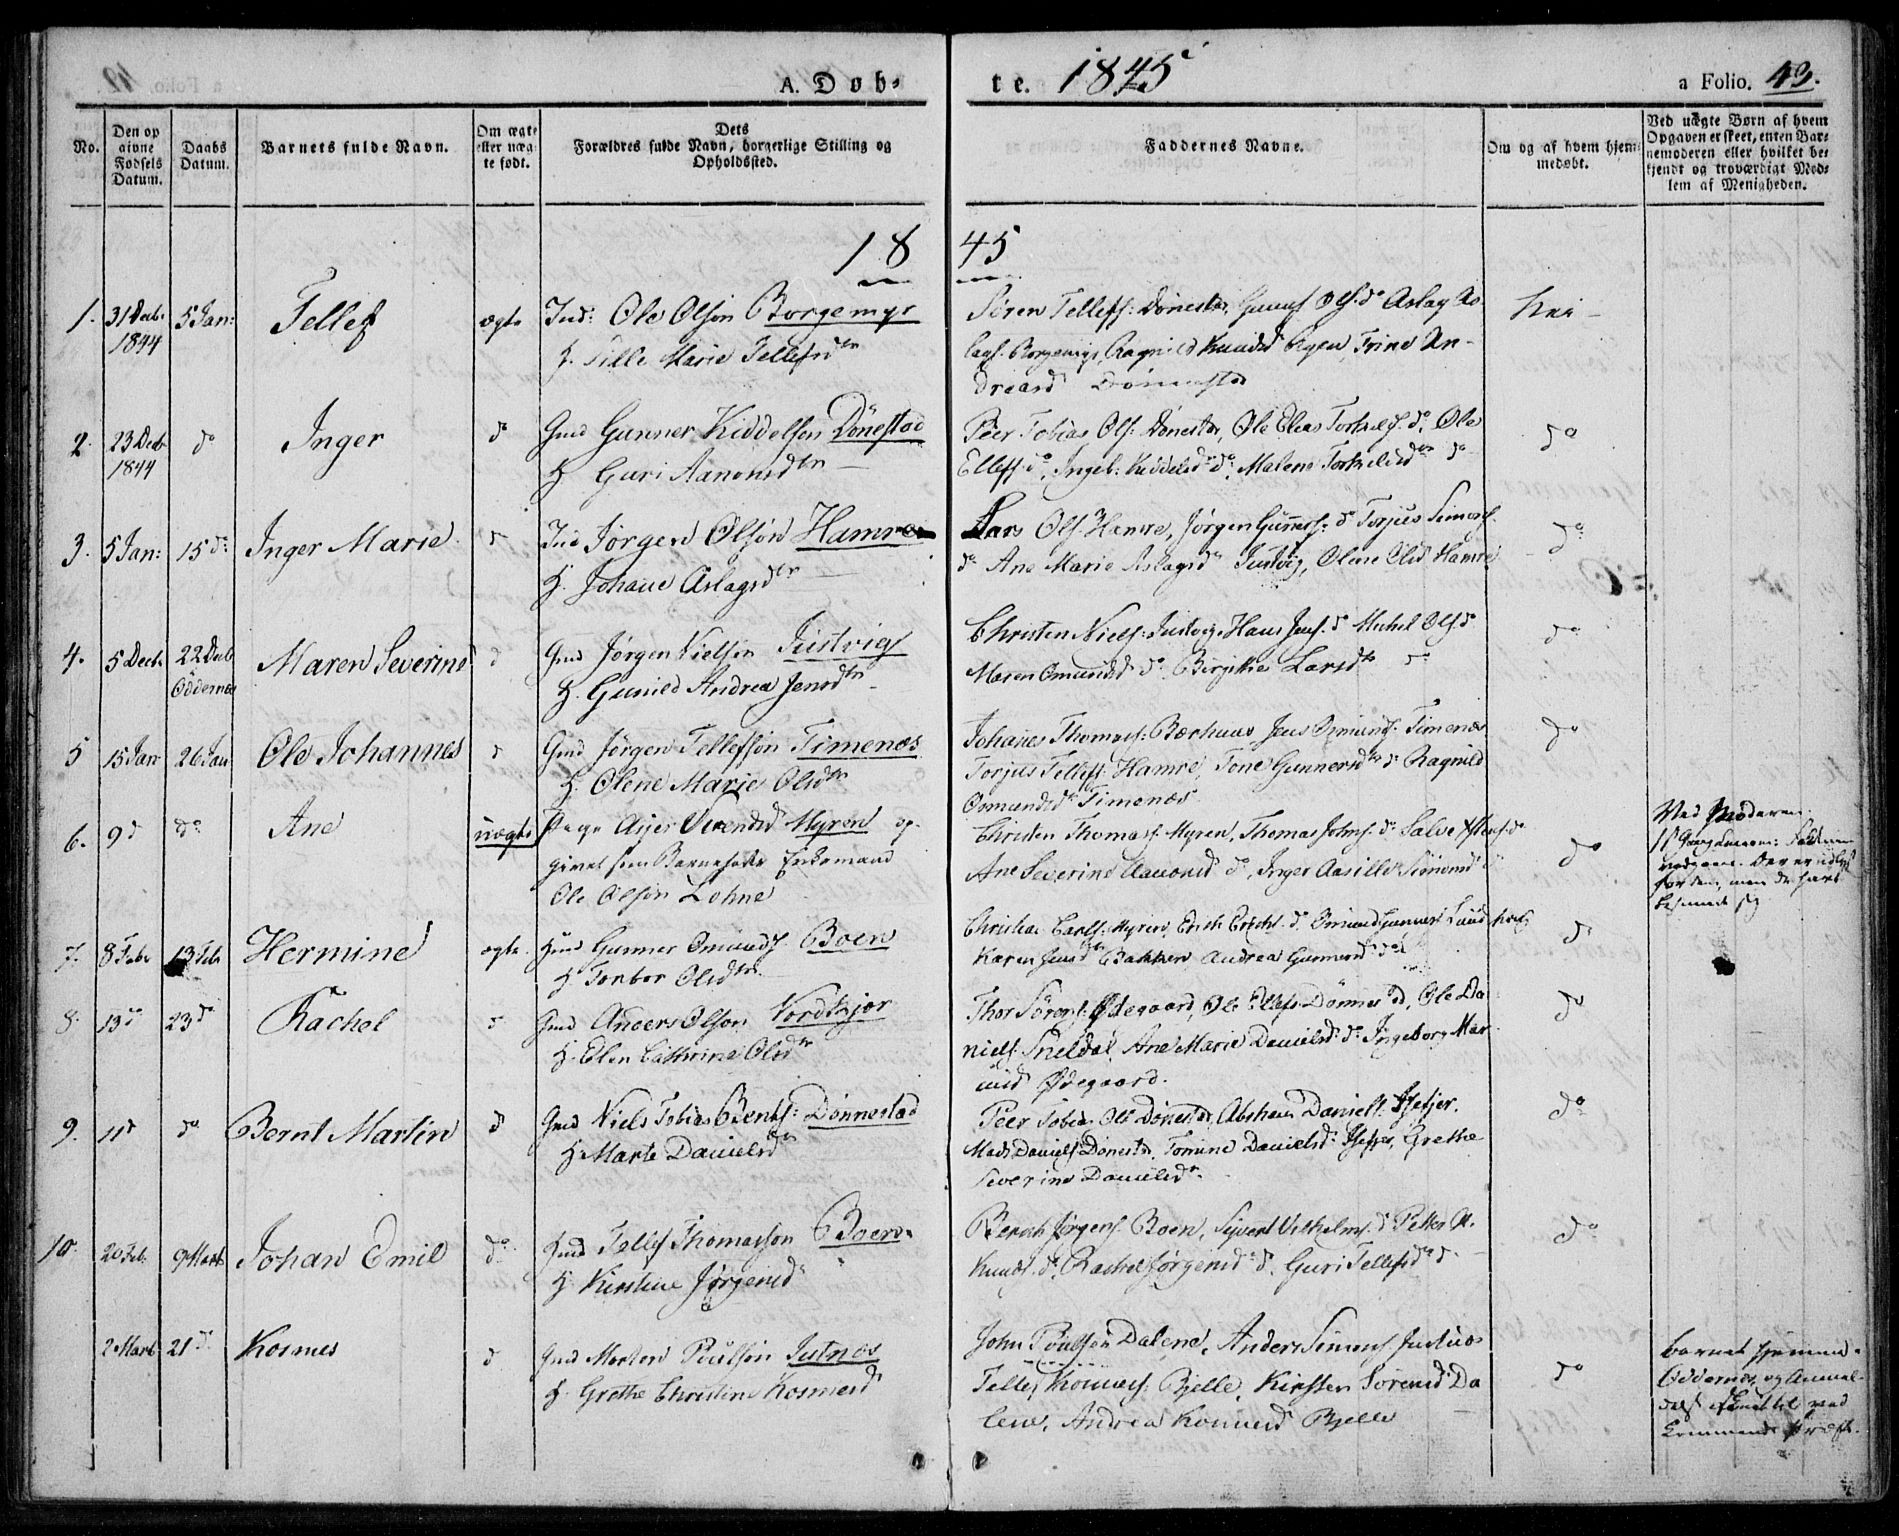 A. Døb-
te. 1845
a Folio. 43.
No.
Den op
givne
Fødsels
Datum.
Daabs
Datum.
Barnets fulde Navn.
Om ægte
eller uæg-
te født.
Dets
Forældres fulde Navn, borgerlige Stilling og
Opholdssted.
Faddernes Navne.
Om og af hvem hjem-
medøbt.
Ved uægte Børn af hvem
Opgaven er skeet, enten Bar-
nemoderen eller hvilket be-
kjendt og troværdigt Med-
lem af Menigheden.
18 45
1. 31 Decb. 1844 5 Jan: Tellef ægte Ind: Ole Olsøn Borgemyr
H. Sille Marie Tellefsdtr
Søren Tellefs: Dønestad, Gunuf Ols. do Aslag As-
lags. Borgemyr, Ragnild Knudsd Agen, Trine An-
dreasd Dønnestad
Nei
2. 23 Decb 1844 do Inger do Gmd Gunner Kiddelsøn Dønestad
H Guri Aanonsdtr
Peer Tobias Ols: Dønestad, Ole Elias Torkels. do, Ole
Ellefs do, Ingeb: Kiddelsd do, Malene Torkeldsdtr do
do
3. 5 Jan: 15 do Inger Marie do Ind Jørgen Olsøn Hamre
H. Johane Aslagsdtr
Lars Ols. Hamre, Jørgen Gunners: do Torjus Simons.
do Ane Marie Aslagsd Justvig, Olene Olsd Hamre
do
4. 5 Decb. 22 Decb Oddernes Maren Severine do Gmd Jørgen Nielsøn Justvig
H. Gunild Andrea Jensdtr
Christen Niels: Justvig, Hans Jens. do Michel Ols do
Maren Omundsd do Birgithe Larsdtr do
do
5 15 Jan 26 Jan Ole Johannes do Gmd Jørgen Tellefsøn Timenæs
H. Olene Marie Olsdtr
Johanes Thomass: Bærhuus Jens Osmunds. Timenæs
Torjus Tellefs: Hamre, Tone Gunnersdtr do Ragnild
Osmundsdtr Timenæs
do
6. 9 do do Ane uægte Pige Asjer Svendsd Myren op-
givet som Barnefader Enkemand
Ole Olsøn Lohne
Christen Thomass. Myren, Thomas Johns. do Salve do
Ane Severine Aanonsd do, Inger Aasille Simonsd do
do
Ved Moderen.
7. 8 Feb. 13 Feb Hermine ægte Gunner Omunds. Boen
H Torbor Olsdtr
Christian Carls. Myren, Erich Erichs. do Omund Gunners
Karen Jensd Bakken, Andrea Gunnersd do
do
8. 13 do 23 do Rachel do Gmd Anders Olsøn Nordkjær
H. Ellen Cathrine Olsdtr
Thor Sørens. Ødegaard, Ole Ellefs. Dønnestad, Ole Da-
niels. Sneldal, Ane Marie Danielsd do Ingeborg Mar-
Ødegaard.
do
9. 11 do do Bernt Martin do Gmd Niels Tobias Bents: Dønnestad
H Marte Danielsd
Peer Tobias Ols Dønestad, Abraham Daniels.
Mads Daniels. Dønestad, Tomine Danielsd. Grethe
Severine Danielsdtr.
do
10. 20 Feb. 9 Marts Johan Emil do Tellef Thomassøn Boen.
H Kirstine Jørgensd
Berent Jørgens. Boen, Sivert Vilhelms. do Petter A.
Knuds. do, Rachel Jørgensd do, Guri Tellefsd do
do
2 Marts 21 do Kosmes do Gmd Morten Poulsøn Justnæs
H. Grethe Christine Kosmesd
John Poulsøn Dalene, Anders Simons Justnæs
Tellef Kosmes. Bjelle, Kirsten Sørensd Da-
lene, Andrea Kosmesd Bjelle
do
Barnet
Oddernes, og Anmel-
ved